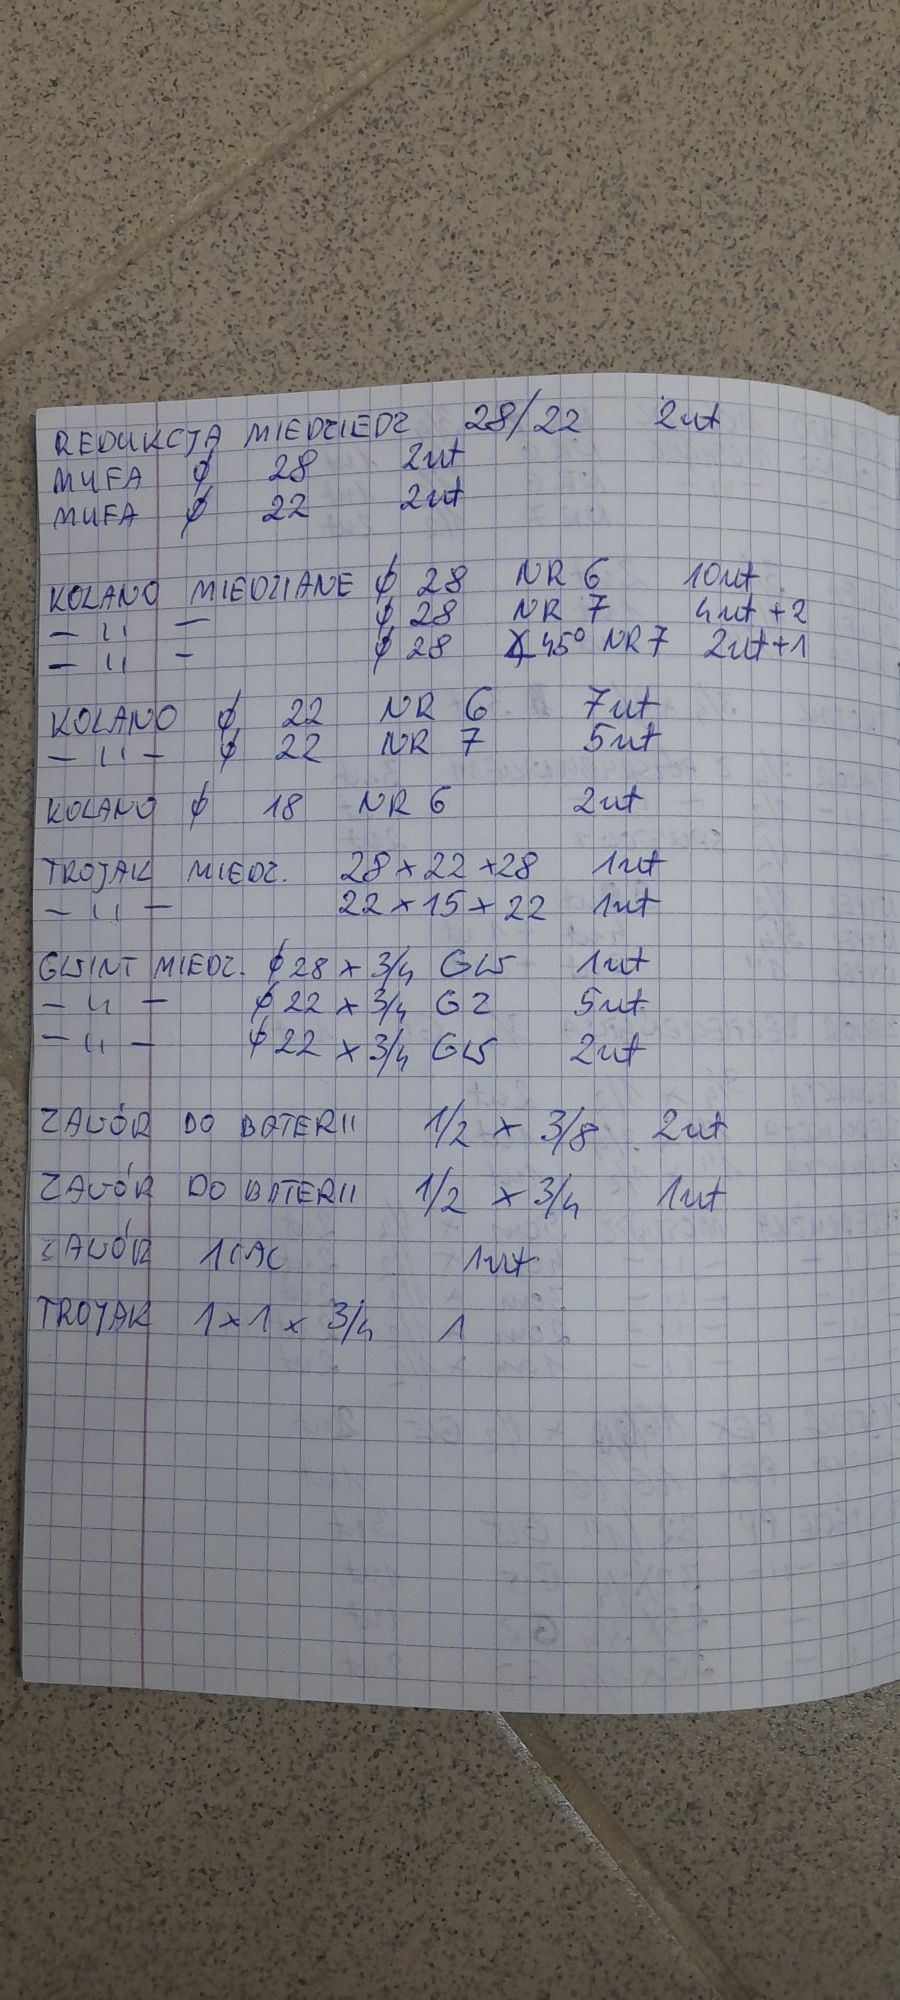 REDUKCJA MIEDZIEDZ 28/22 2szt
MUFA ϕ 28 2szt
MUFA ϕ 22 2szt
KOLANO MIEDZIANE ϕ 28 NR 6 10szt
— " — ϕ 28 NR 7 4szt + 2
— " — ϕ 28 ∡ 45° NR 7 2szt + 1
KOLANO ϕ 22 NR 6 7szt
— " — ϕ 22 NR 7 5szt
KOLANO ϕ 18 NR 6 2szt
TROJAK MIEDZ. 28 x 22 x 28 1szt
— " — 22 x 15 x 22 1szt
GWINT MIEDZ. ϕ 28 x 3/4 GW 1szt
— " — ϕ 22 x 3/4 GZ 5szt
— " — ϕ 22 x 3/4 GW 2szt
ZAWÓR DO BATERII 1/2 x 3/8 2szt
ZAWÓR DO BATERII 1/2 x 3/4 1szt
ZAWÓR 1 CAL 1szt
TROJAK 1 x 1 x 3/4 1